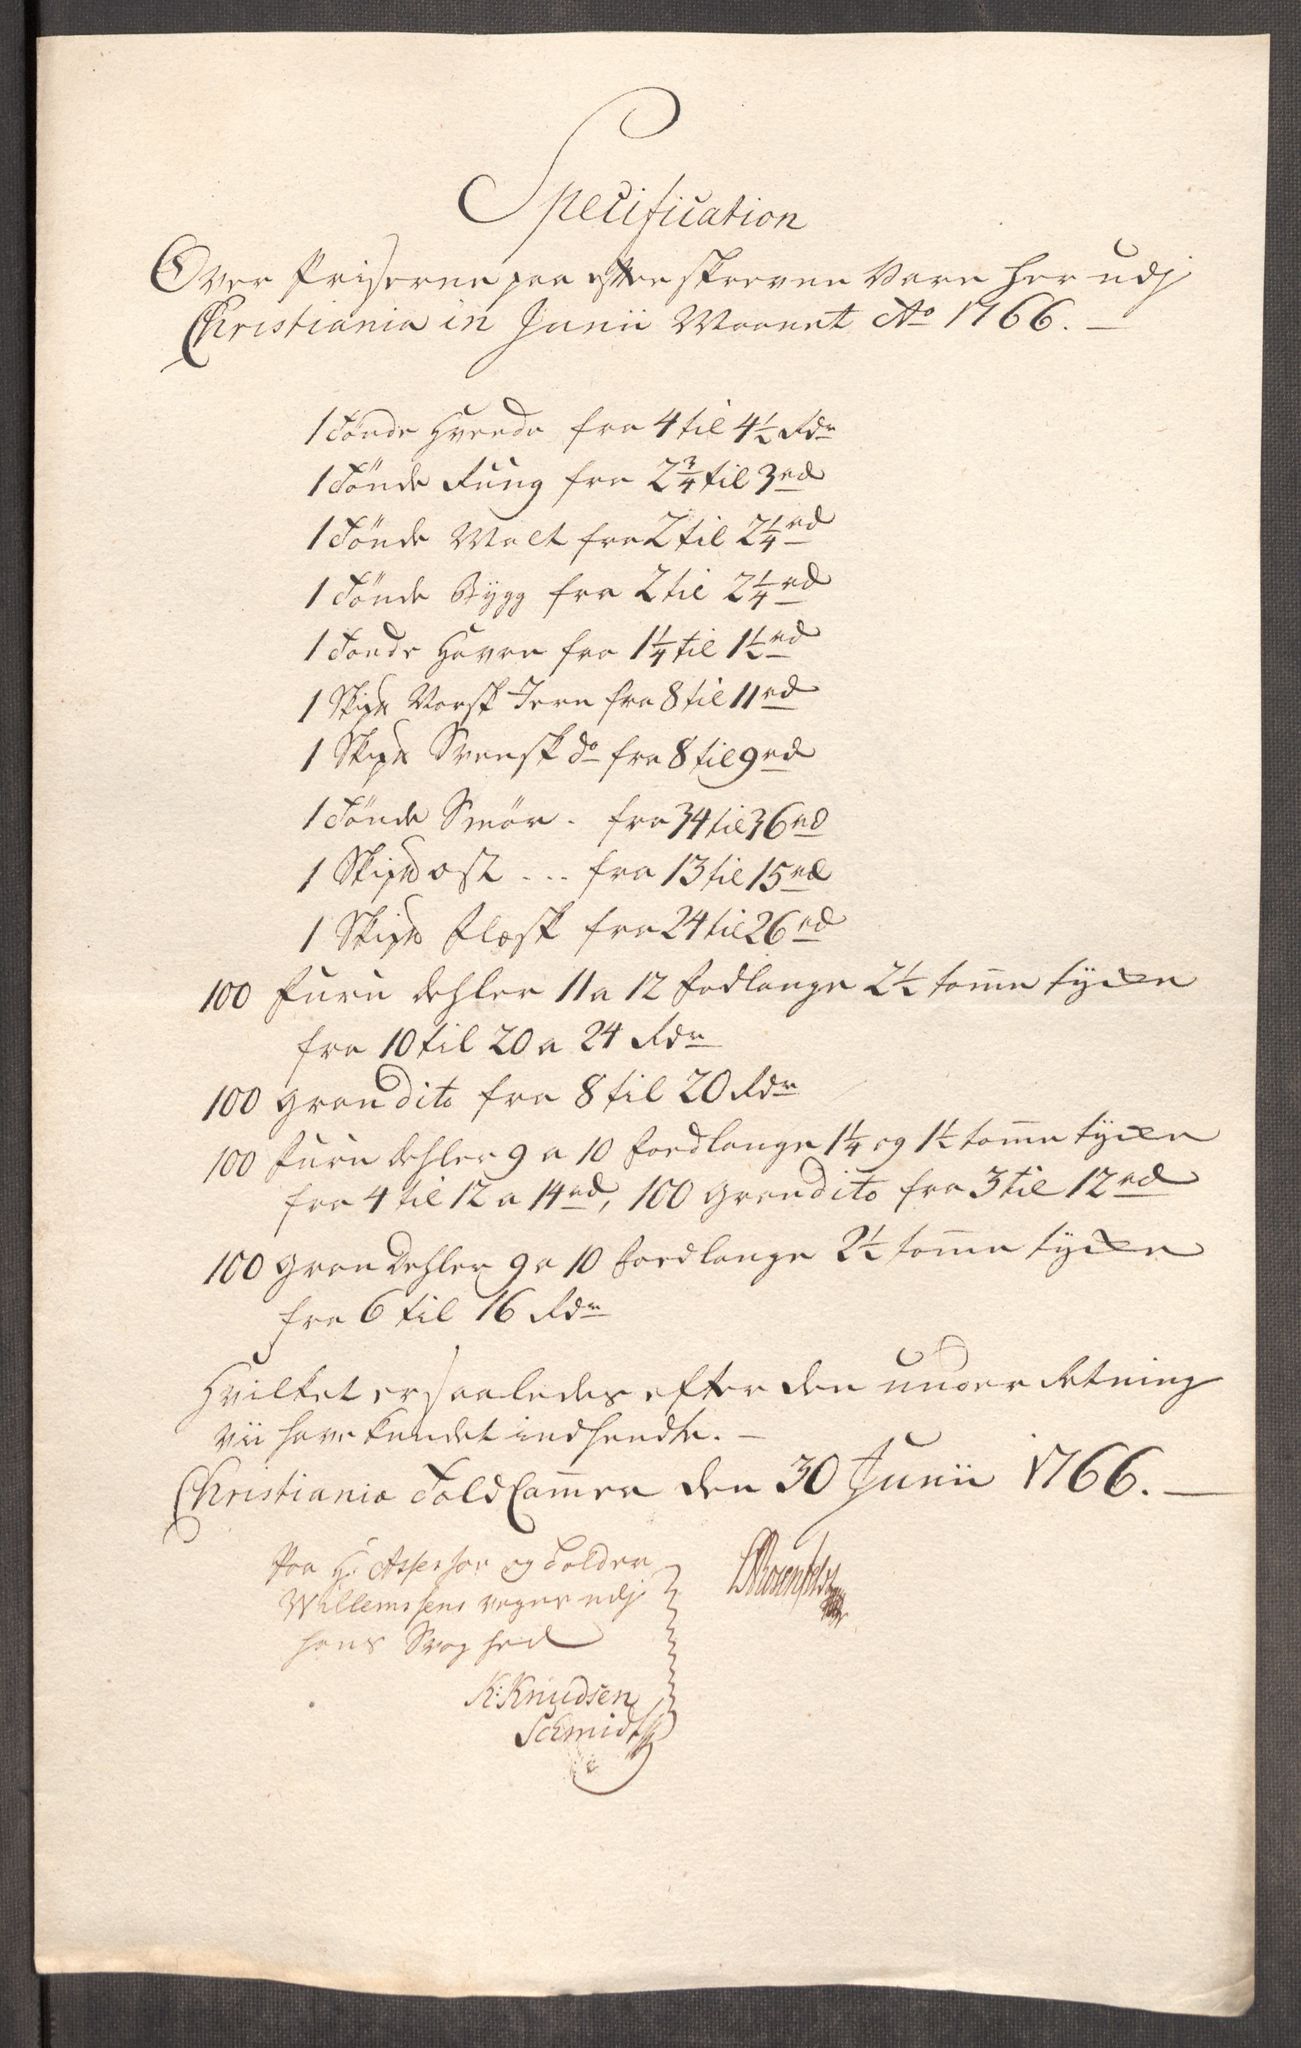 Specification
Over Priserne paa efterskrevne Vare her udj
Christiania in Junii Maanet Ao 1766. —
1 Tönde Hvede fra 4 til 4½ Rdr
1 Tönde Rüug fra 2¾ til 3 rd
1 Tönde Malt fra 2 til 2¼ rd
1 Tönde Bÿgg fra 2 til 2¼ rd
1 Tönde Havre fra 1¼ til 1½ rd
1 Skip℔ Norsk Jern fra 8 til 11 rd
1 Skip℔ Svensk do fra 8 til 9 rd
1 Tönde Smör . fra 34 til 36 rd
1 Skip℔ Ost ... fra 13 til 15 rd
1 Skip℔ Flæsk fra 24 til 26 rd
100 Furu Dehler 11 a 12 fodlange 2½ tom̄e tÿcke
fra 10 til 20 a 24 Rdr
100 gran dito fra 8 til 20 Rdr
100 Furu Dehler 9 a 10 foedlange 1¼ og 1½ tom̄e tÿcke
fra 4 til 12 a 14 rd, 100 gran dito fra 3 til 12 rd
100 gran Dehler 9 a 10 foedlange 2½ tom̄e tÿcke
fra 6 til 16 Rdr
Hvilket er saaledes efter den underretning
vii have kundet indhendte. —
Christiania Told Cam̄er den 30 Junii 1766. —
Paa Hr Assessor og Tolder
Willemsens vegne udj
hans Svaghed
K: Knudsen
Schmidt